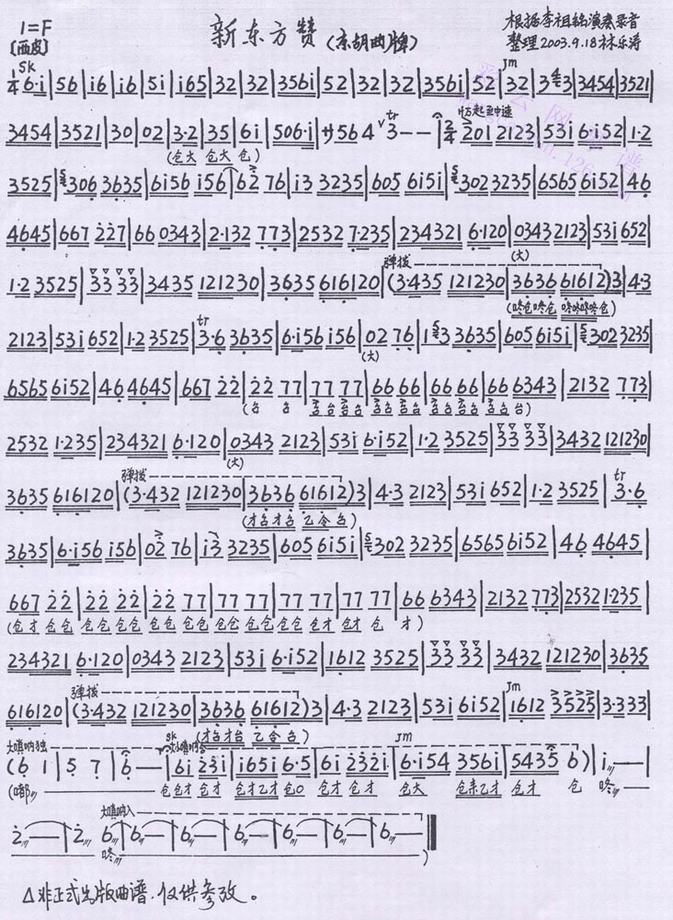 1=F
[西皮]
新东方赞(京胡曲牌)
根据李祖铭演奏录音
整理2003.9.18林乐涛
1/4 SK 6·i|56|i6|i6|5i|i65|32|32|356i|52|32|32|356i|52|Jm 32|3 3|3454|3521|
3454|3521|30|02|3·2|35|6i|506·i|サ564 tr 3--|2/4 201 2123|53i 6·i52|1·2
(仓大 仓大 仓)
3525|306 3635|6i56 i56|62 76|i3 3235|605 6i5i|302 3235|6565 6i52|46
4645|667 227|66 0343|2·132 773|2532 7·235|234321 6·120|0343 2123|53i 652|
(大)
弹拨
1·2 3525|33 33|3435 121230|3635 616120|(3·435 121230|3636 61612)3|4·3
2123|53i 652|1·2 3525|tr 3·6 3635|6·i56 i56|02 76|1 3 3635|605 6i5i|302 3235
(大)
6565 6i52|46 4645|667 22|22 77|77 77|66 66|66 66|66 6343|2132 773|
2532 1·235|234321 6·120|0343 2123|53i 6·i52|1·2 3525|33 33|3432 121230|
(大)
弹拨
3635 616120|(3·432 121230|3636 61612)3|4·3 2123|53i 652|1·2 3525|tr 3·6
(才台才台 乙令台)
3635|6·i56 i56|02 76|i3 3235|605 6i5i|302 3235|6565 6i52|46 4645|
667 22|22 22|22 77|77 77|77 77|77 77|66 6343|2132 773|2532 1·235|
(仓才 仓仓 仓仓 仓仓 仓仓 仓仓 仓仓 仓仓 仓才 仓才 仓 才)
234321 6·120|0343 2123|53i 6·i52|1612 3525|33 33|3432 121230|3635
弹拨
616120|(3·432 121230|3636 61612)3|4·3 2123|53i 6i52|Jm 1612 33523|3·333|
(才台才台 乙令台)
大唢呐独
(6 1|5 7|6--|SK 6i 23i|i65i 6·5|6i 232i|Jm 6·i54 356i|5435 6)|i--|
2--|2--|大唢呐入 6--|6--|6--|6--|6--|6--‖
△非正式出版曲谱,仅供参改。